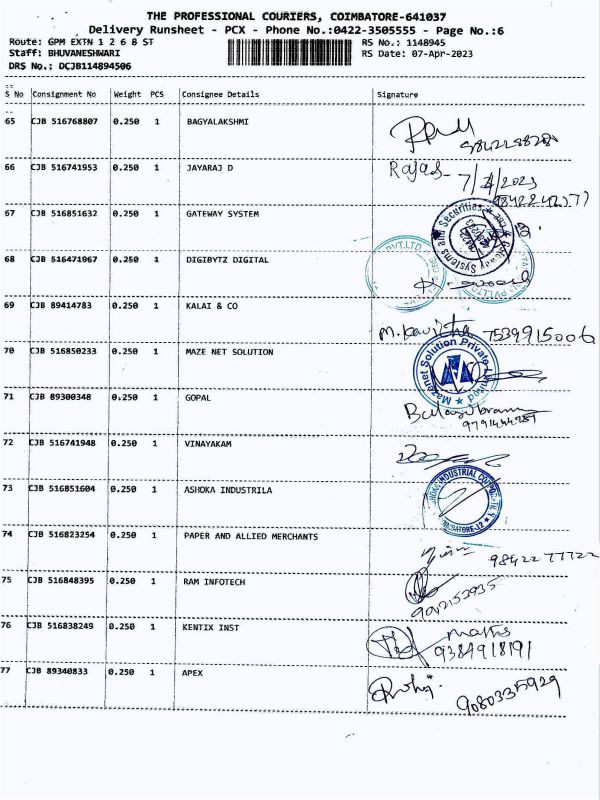 THE PROFESSIONAL COURIERS, COIMBATORE-641037
Delivery Runsheet - PCX - Phone No.:0422-3505555 - Page No.:6
Route: GPM EXTN 1 2 6 8 ST RS No.: 1148945
Staff: BHUVANESHWARI RS Date: 07-Apr-2023
DRS No.: DCJB114894506
S No Consignment No Weight PCS Consignee Details Signature
65 CJB 516768807 0.250 1 BAGYALAKSHMI
66 CJB 516741953 0.250 1 JAYARAJ D
7/4/2023
9842242577
67 CJB 516851632 0.250 1 GATEWAY SYSTEM
Gateway Systems and Securities ★ CBE
68 CJB 516471967 0.250 1 DIGIBYTZ DIGITAL
PVT.LTD
69 CJB 89414783 0.250 1 KALAI & CO
M. Kavitha 7539915006
70 CJB 516850233 0.250 1 MAZE NET SOLUTION
Mazenet Solution Private Limited ★
71 CJB 89300348 0.250 1 GOPAL
72 CJB 516741948 0.250 1 VINAYAKAM
73 CJB 516851604 0.250 1 ASHOKA INDUSTRILA
INDUSTRIAL
74 CJB 516823254 0.250 1 PAPER AND ALLIED MERCHANTS
98422 77722
75 CJB 516848395 0.250 1 RAM INFOTECH
76 CJB 516838249 0.250 1 KENTIX INST
9384918191
77 CJB 89340833 0.250 1 APEX
9080335929